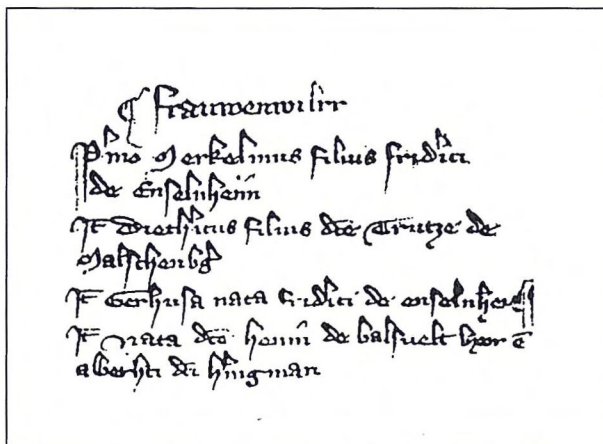 ¶ Frauwenwilr
P'mo Merkelinus filius frid'ici
de Enselnheim
It Dieth'icus filius dce Trutze de
Malschenbg
It Gerhusa nata frid'ici de enselnhem
It nata dco henni de balsuelt vxor
alberhti dci h'ingman